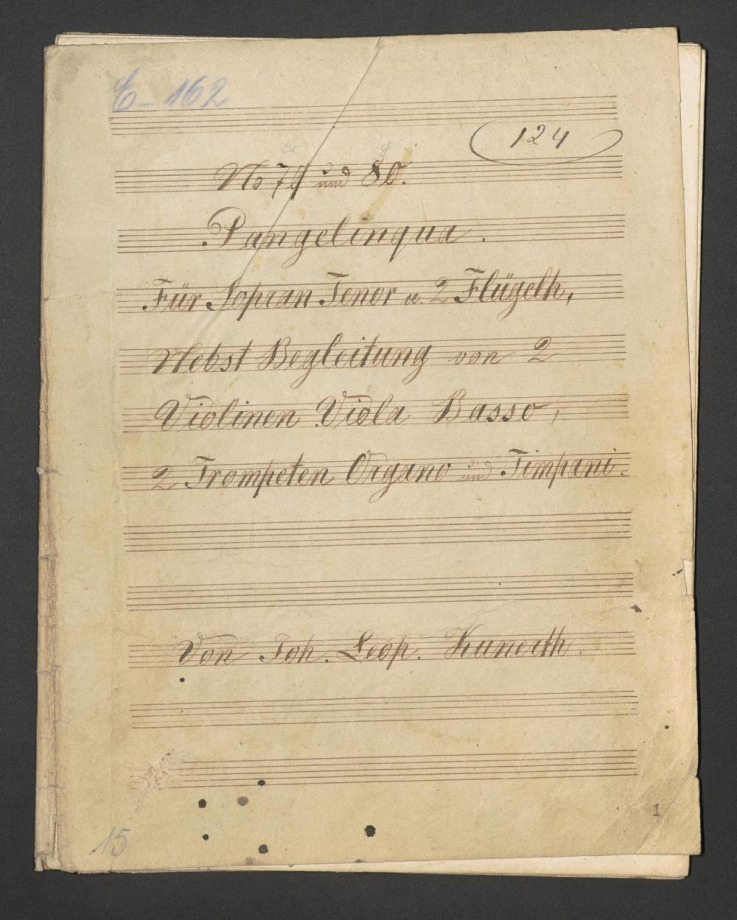 E-162
124
No 79 und 80.
Pangelingua.
Für Sopran Tenor u. 2 Flügelh,
Nebst Begleitung von 2
Violinen Viola Basso,
2 Trompeten Organo und Timpani.
Von Joh. Leop. Kunerth.
1
15